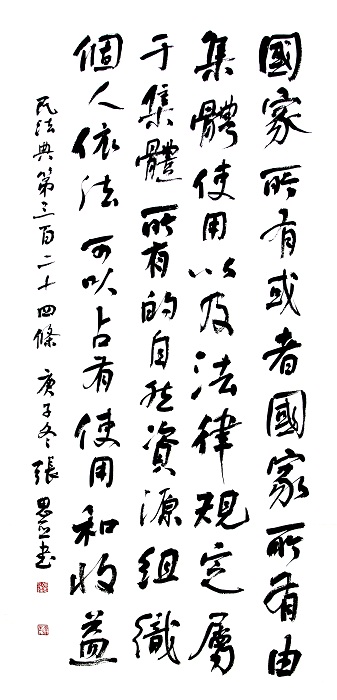 國家所有或者國家所有由
集體使用以及法律規定屬
于集體所有的自然資源組織
個人依法可以占有使用和收益
民法典第三百二十四條 庚子冬 張思正书